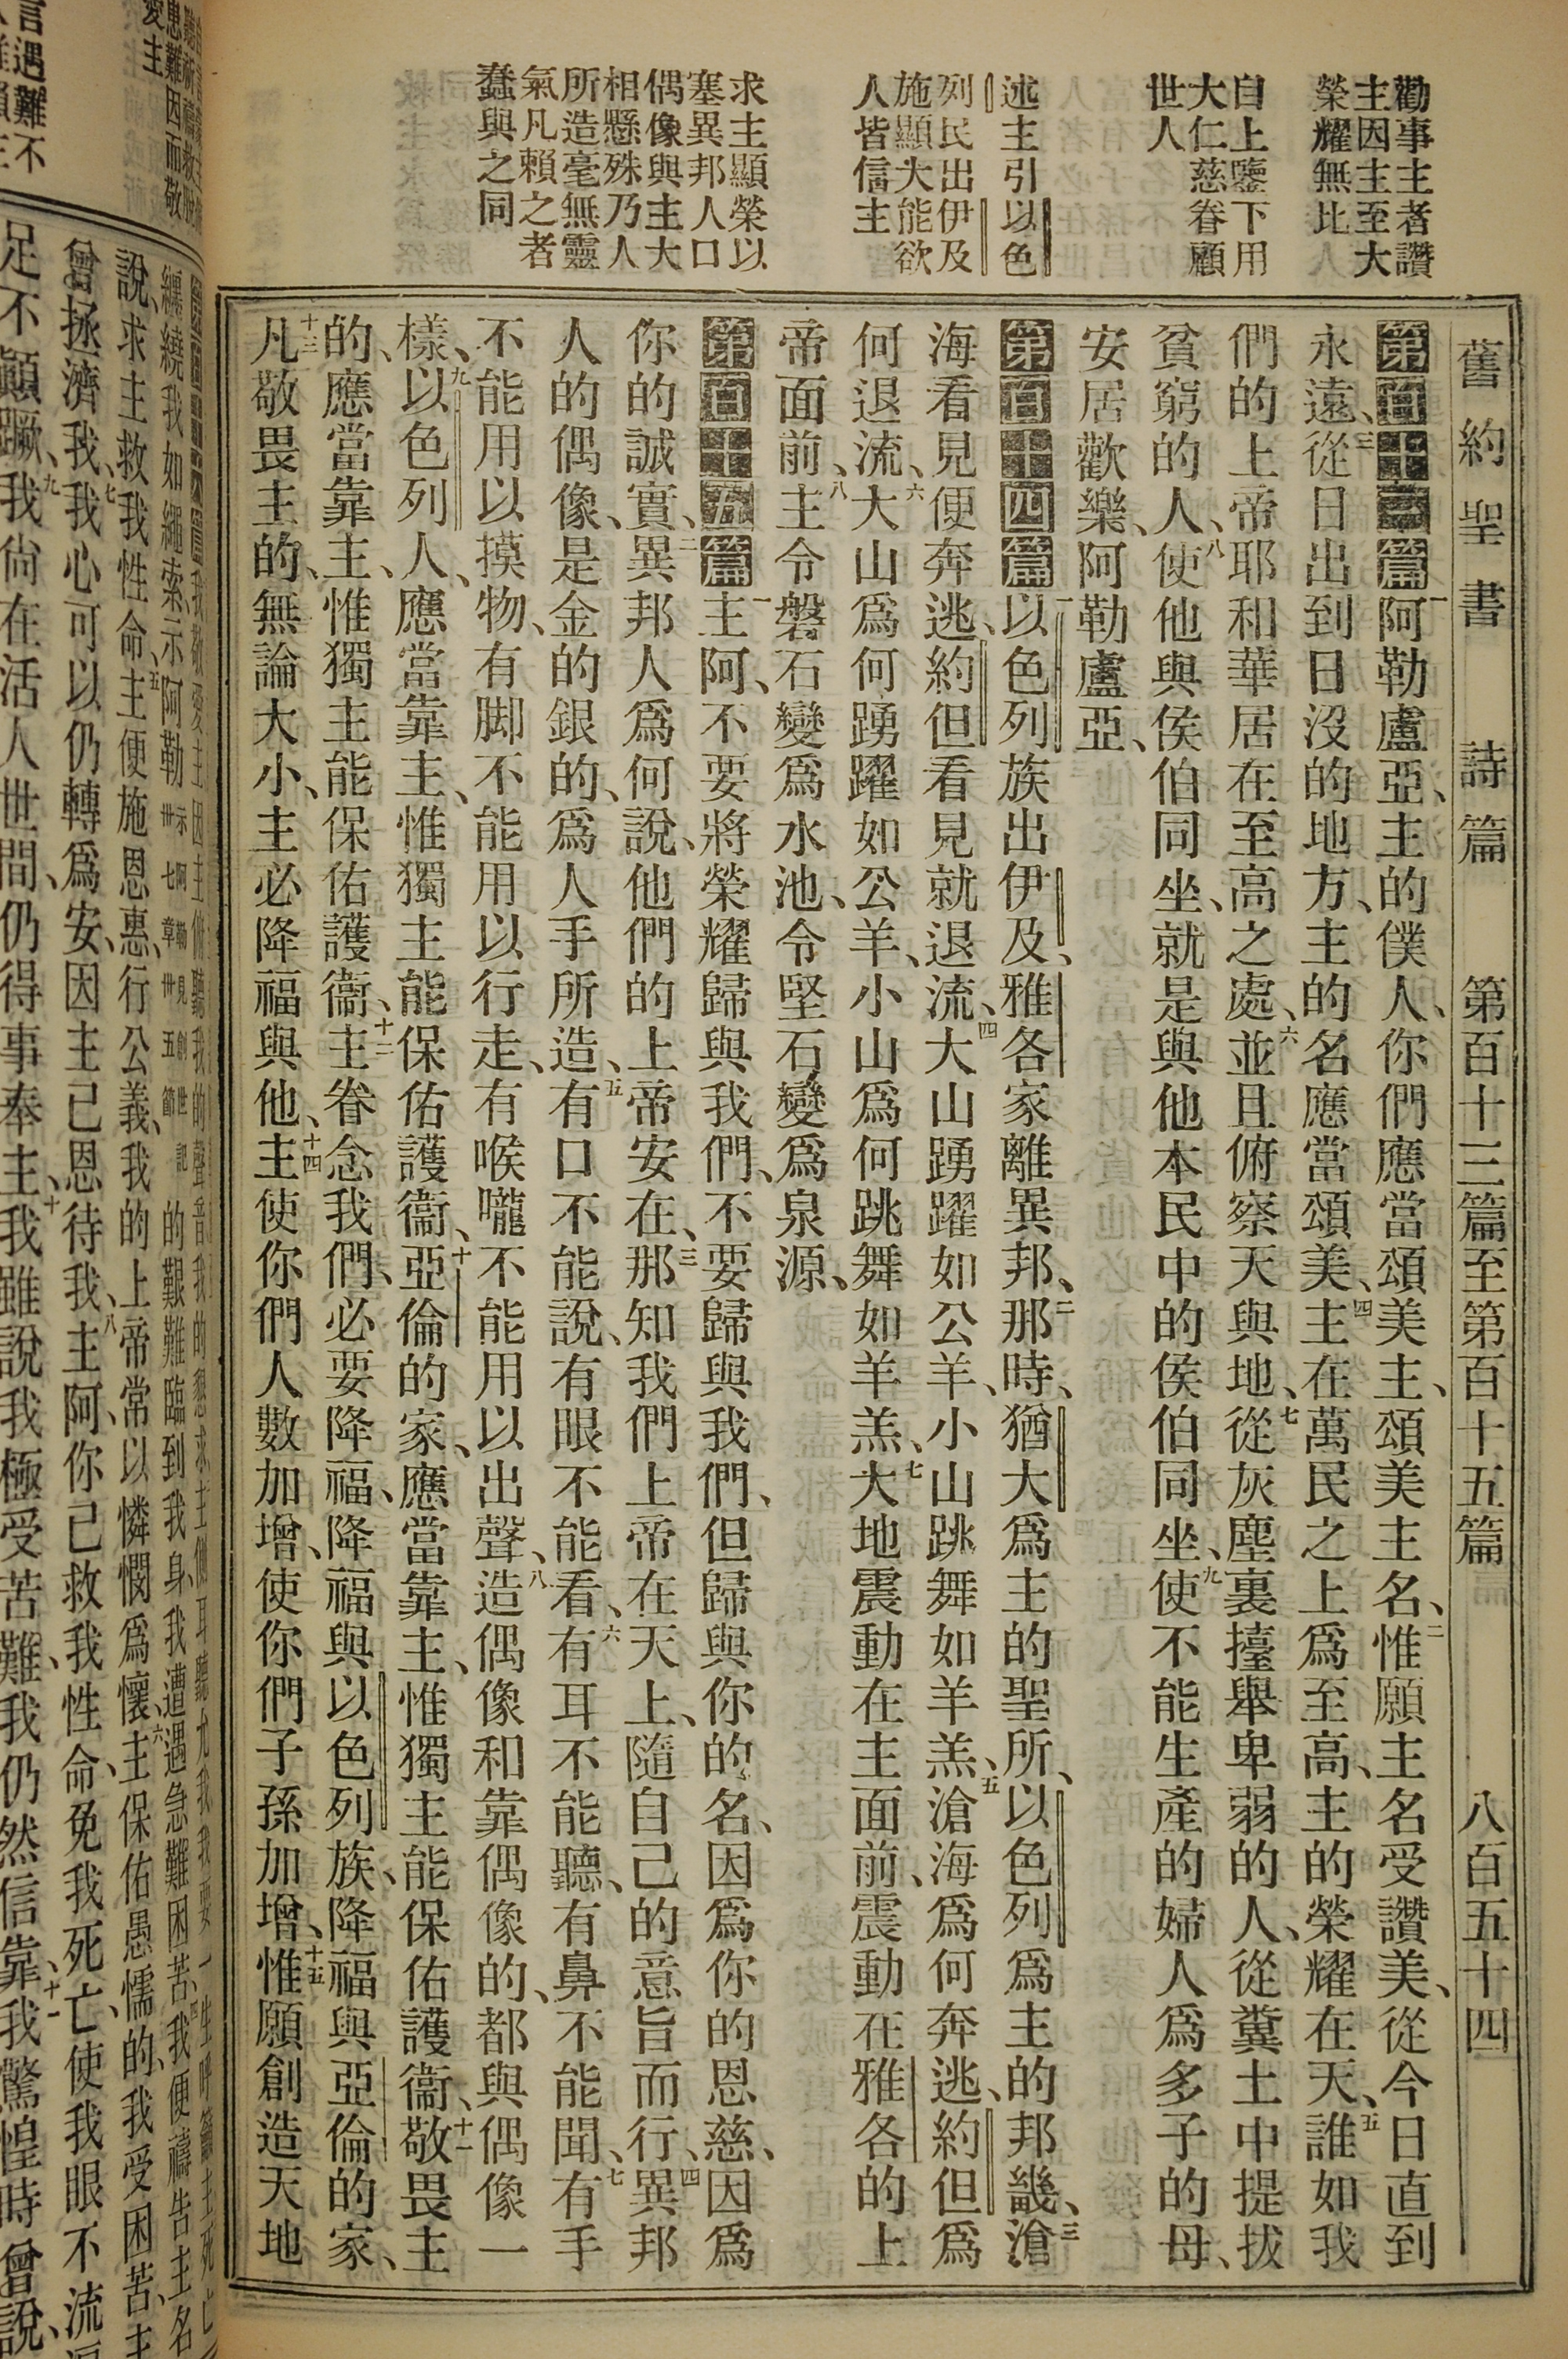 舊約聖書 詩篇 第百十三篇至第百十五篇 八百五十四
勸事主者讚
主因主至大
榮耀無比
自上鑒下用
大仁慈眷顧
世人
述主引以色
列民出伊及
施顯大能欲
人皆信主
求主顯榮以
塞異邦人口
偶像與主大
相懸殊乃人
所造毫無靈
氣凡賴之者
蠢與之同
第百十三篇一阿勒盧亞、主的僕人、你們應當頌美主、頌美主名、二惟願主名受讚美、從今日直到
永遠、三從日出到日沒的地方、主的名應當頌美、四主在萬民之上爲至高、主的榮耀在天、五誰如我
們的上帝耶和華居在至高之處、六並且俯察天與地、七從灰塵裏擡舉卑弱的人、從糞土中提拔
貧窮的人、八使他與侯伯同坐、就是與他本民中的侯伯同坐、九使不能生產的婦人爲多子的母、
安居歡樂、阿勒盧亞、
第百十四篇一以色列族出伊及、雅各家離異邦、二那時、猶大爲主的聖所、以色列爲主的邦畿、三滄
海看見便奔逃、約但看見就退流、四大山踴躍如公羊、小山跳舞如羊羔、五滄海爲何奔逃、約但爲
何退流、六大山爲何踴躍如公羊、小山爲何跳舞如羊羔、七大地震動在主面前、震動在雅各的上
帝面前、八主令磐石變爲水池、令堅石變爲泉源、
第百十五篇一主阿、不要將榮耀歸與我們、不要歸與我們、但歸與你的名、因爲你的恩慈、因爲
你的誠實、二異邦人爲何說、他們的上帝安在、三那知我們上帝在天上、隨自己的意旨而行、四異邦
人的偶像、是金的銀的、爲人手所造、五有口不能說、有眼不能看、六有耳不能聽、有鼻不能聞、七有手
不能用以摸物、有脚不能用以行走、有喉嚨不能用以出聲、八造偶像和靠偶像的、都與偶像一
樣、九以色列人、應當靠主、惟獨主能保佑護衞、十亞倫的家、應當靠主、惟獨主能保佑護衞、十一敬畏主
的、應當靠主、惟獨主能保佑護衞、十二主眷念我們、必要降福、降福與以色列族、降福與亞倫的家、
十三凡敬畏主的、無論大小、主必降福與他、十四主使你們人數加增、使你們子孫加增、十五惟願創造天地
患難因而敬
愛主
言遇難不
我敬愛主因主俯聽我的聲音我的懇求主側耳聽允我我要一生呼籲主死亡
纏繞我如繩索、示阿勒示阿勒見創世記世七章世五節的艱難臨到我身、我遭遇急難困苦、我便禱告主名
說、求主救我性命、五主便施恩惠、行公義、我的上帝常以憐憫爲懷、六主保佑愚懦的、我受困苦、主
曾拯濟我、七我心可以仍轉爲安、因主已恩待我、八主阿、你已救我性命、免我死亡、使我眼不流淚
足不顛蹶、九我尙在活人世間、仍得事奉主、十我雖說我極受苦難、我仍然信靠、十一我驚惶時曾說、